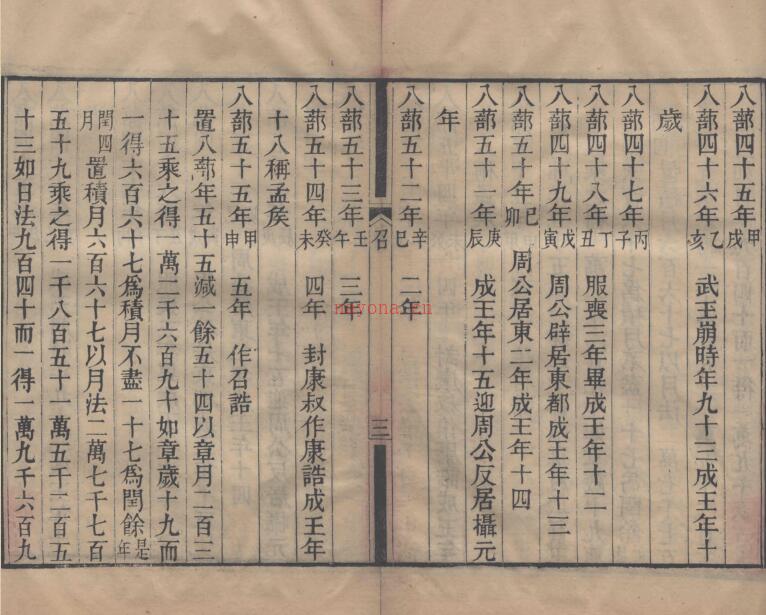 入蔀四十五年甲戌
入蔀四十六年乙亥 武王崩時年九十三成王年十
歲
入蔀四十七年丙子
入蔀四十八年丁丑 服喪三年畢成王年十二
入蔀四十九年戊寅 周公辟居東都成王年十三
入蔀五十年己卯 周公居東二年成王年十四
入蔀五十一年庚辰 成王年十五迎周公反居攝元
年
入蔀五十二年辛巳 二年
召
三
入蔀五十三年壬午 三年
入蔀五十四年癸未 四年 封康叔作康誥成王年
十八稱孟矦
入蔀五十五年甲申 五年 作召誥
置入蔀年五十五減一餘五十四以章月二百三
十五乘之得一萬二千六百九十如章歲十九而
一得六百六十七爲積月不盡一十七爲閏餘是年
閏四月置積月六百六十七以月法二萬七千七百
五十九乘之得一千八百五十一萬五千二百五
十三如日法九百四十而一得一萬九千六百九
nayona.cu